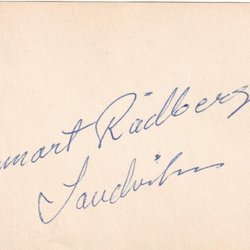 nmart Rådberg
Sandviken